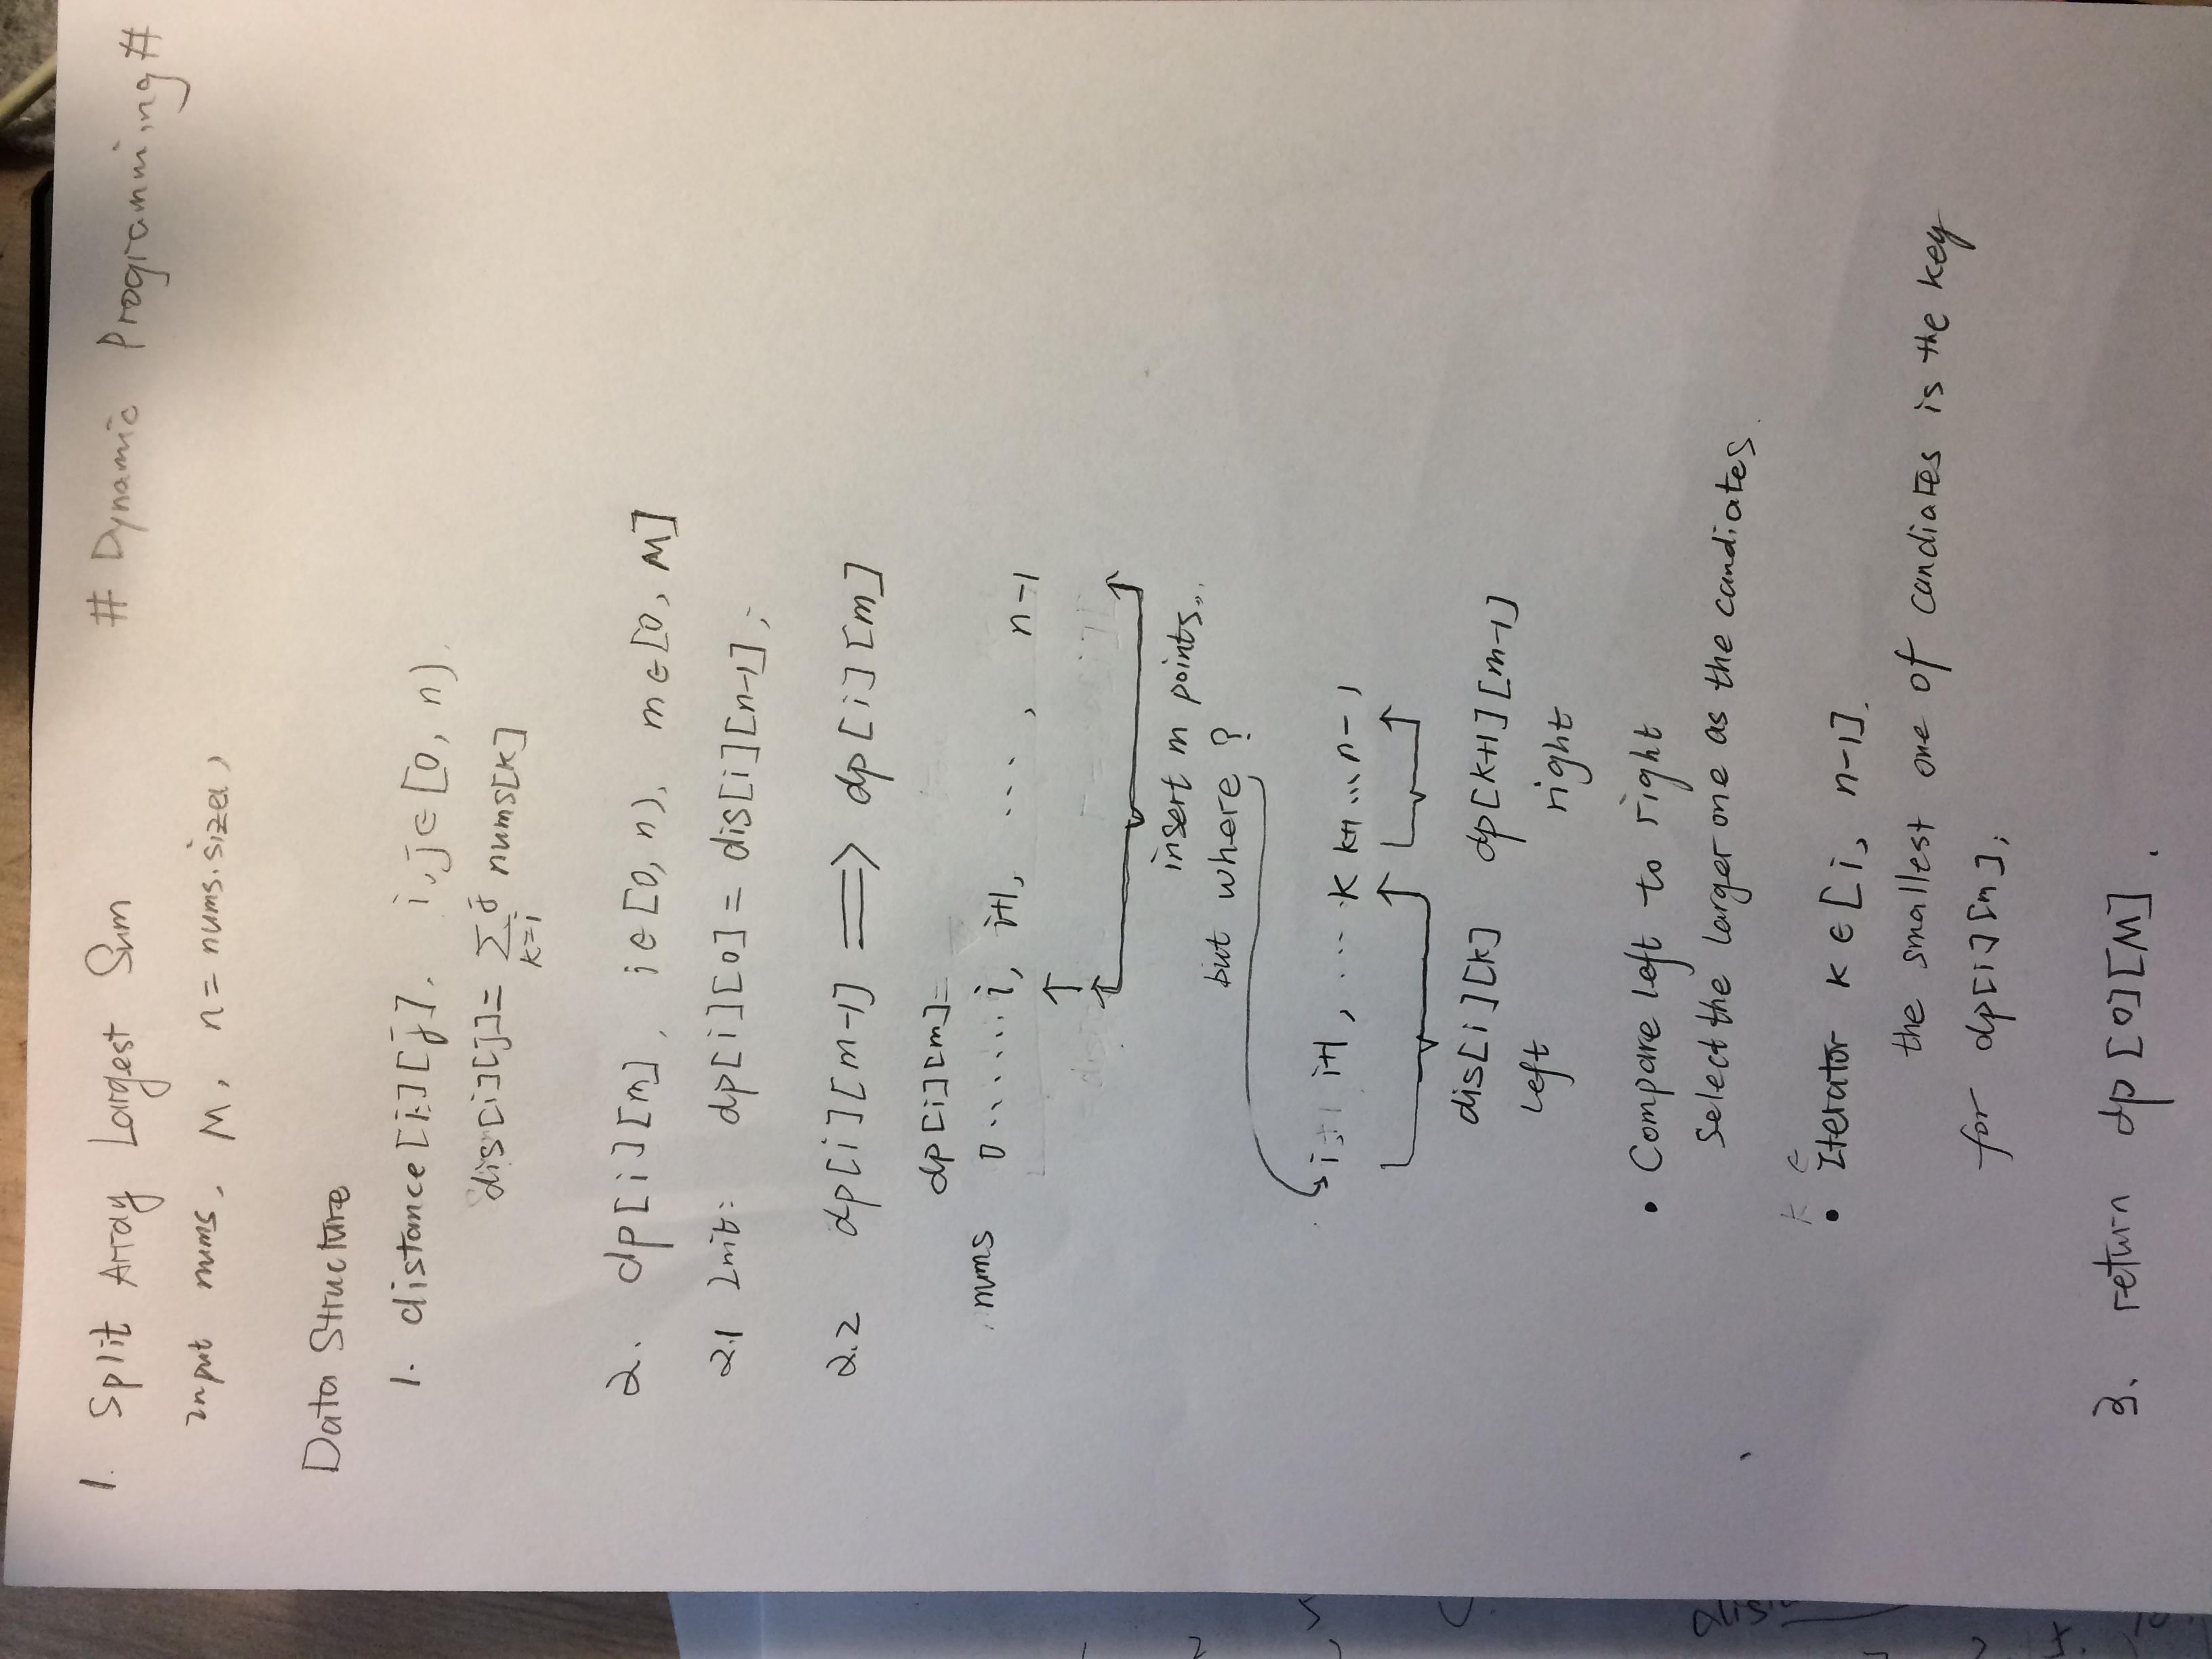 1. Split Array Largest Sum # Dynamic Programming #
Input nums, M, n = nums.size()
Data Structure
1. distance[i][j], i,j∈[0, n).
dis[i][j] = ∑_{k=i}^{j} nums[k]
2. dp[i][m], i∈[0, n), m∈[0, M]
2.1 Init: dp[i][0] = dis[i][n-1];
2.2 dp[i][m-1] ⟹ dp[i][m]
dp[i][m]=
nums 0.......i, i+1, ..., n-1
insert m points..
but where ?
i, i+1, ... k k+1 ... n-1
dis[i][k] dp[k+1][m-1]
left right
• Compare left to right
Select the larger one as the candiates.
k ∈
• Iterator k∈[i, n-1].
the smallest one of candiates is the key
for dp[i][m];
3. return dp[0][M].